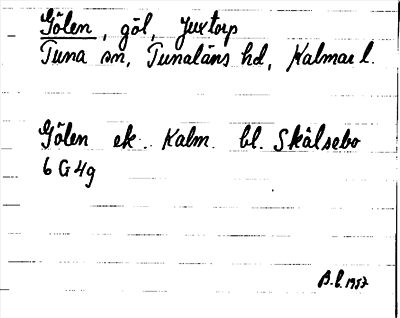 Gölen, göl, Juxtorp
Tuna sn, Tunaläns hd, Kalmar l.
Gölen ek. Kalm. bl. Skälsebo
6 G 4g
B.L. 1957